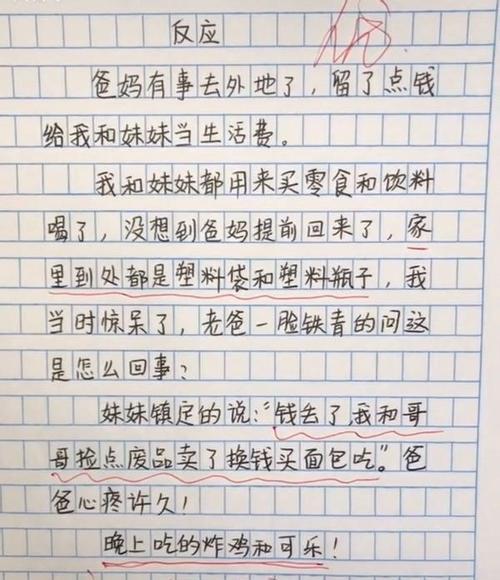 反应
爸妈有事去外地了，留了点钱
给我和妹妹当生活费。
我和妹妹都用来买零食和饮料
喝了，没想到爸妈提前回来了，家
里到处都是塑料袋和塑料瓶子，我
当时惊呆了，老爸一脸铁青的问这
是怎么回事？
妹妹镇定的说：“钱丢了，我和哥
哥捡点废品卖了换钱买面包吃。”爸
爸心疼许久！
晚上吃的炸鸡和可乐！